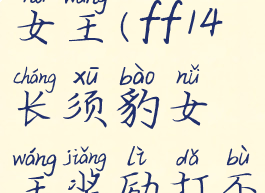 女王(ff14
cháng xū bào nǚ
长须豹女
wáng jiǎng lì dǎ bù
王奖励打不